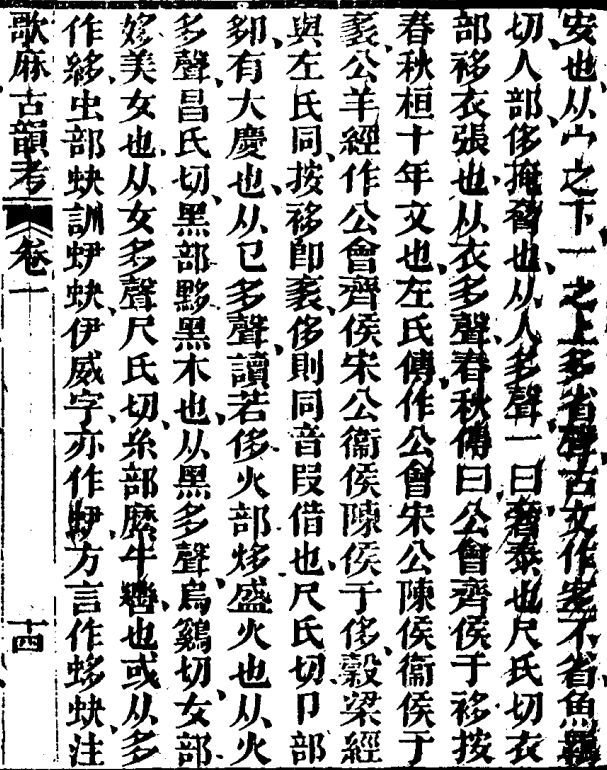 安也从宀之下一之上多省聲古文作宐不省魚羈
切人部侈掩脅也从人多聲一曰奢泰也尺氏切衣
部袳衣張也从衣多聲春秋傳曰公會齊侯于袳按
春秋桓十年文也左氏傳作公會宋公陳侯衞侯于
袲公羊經作公會齊侯宋公衞侯陳侯于侈穀梁經
與左氏同按袳卽袲侈則同音叚借也尺氏切卩部
𨙫有大慶也从㔾多聲讀若侈火部㶴盛火也从火
多聲昌氏切黑部黟黑木也从黑多聲烏鷄切女部
姼美女也从女多聲尺氏切糸部縻牛轡也或从多
作𦂛虫部蛜訓蛜蛜伊威字亦作蛜方言作蛥蚗注
歌麻古韻考 卷一 十四